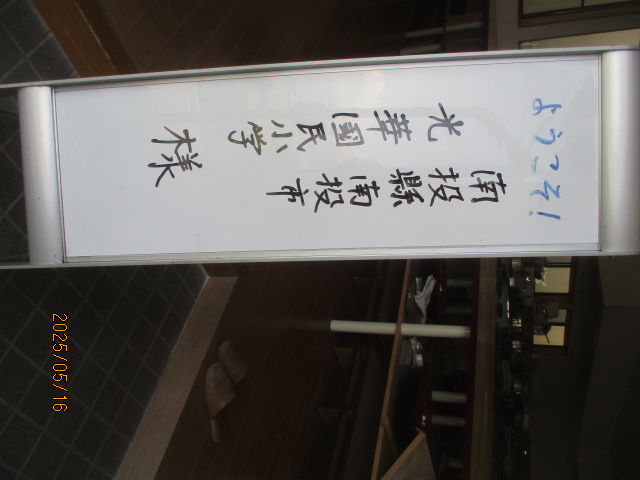 ようこそ!
南投縣南投市
光華國民小学
様
2025/05/16